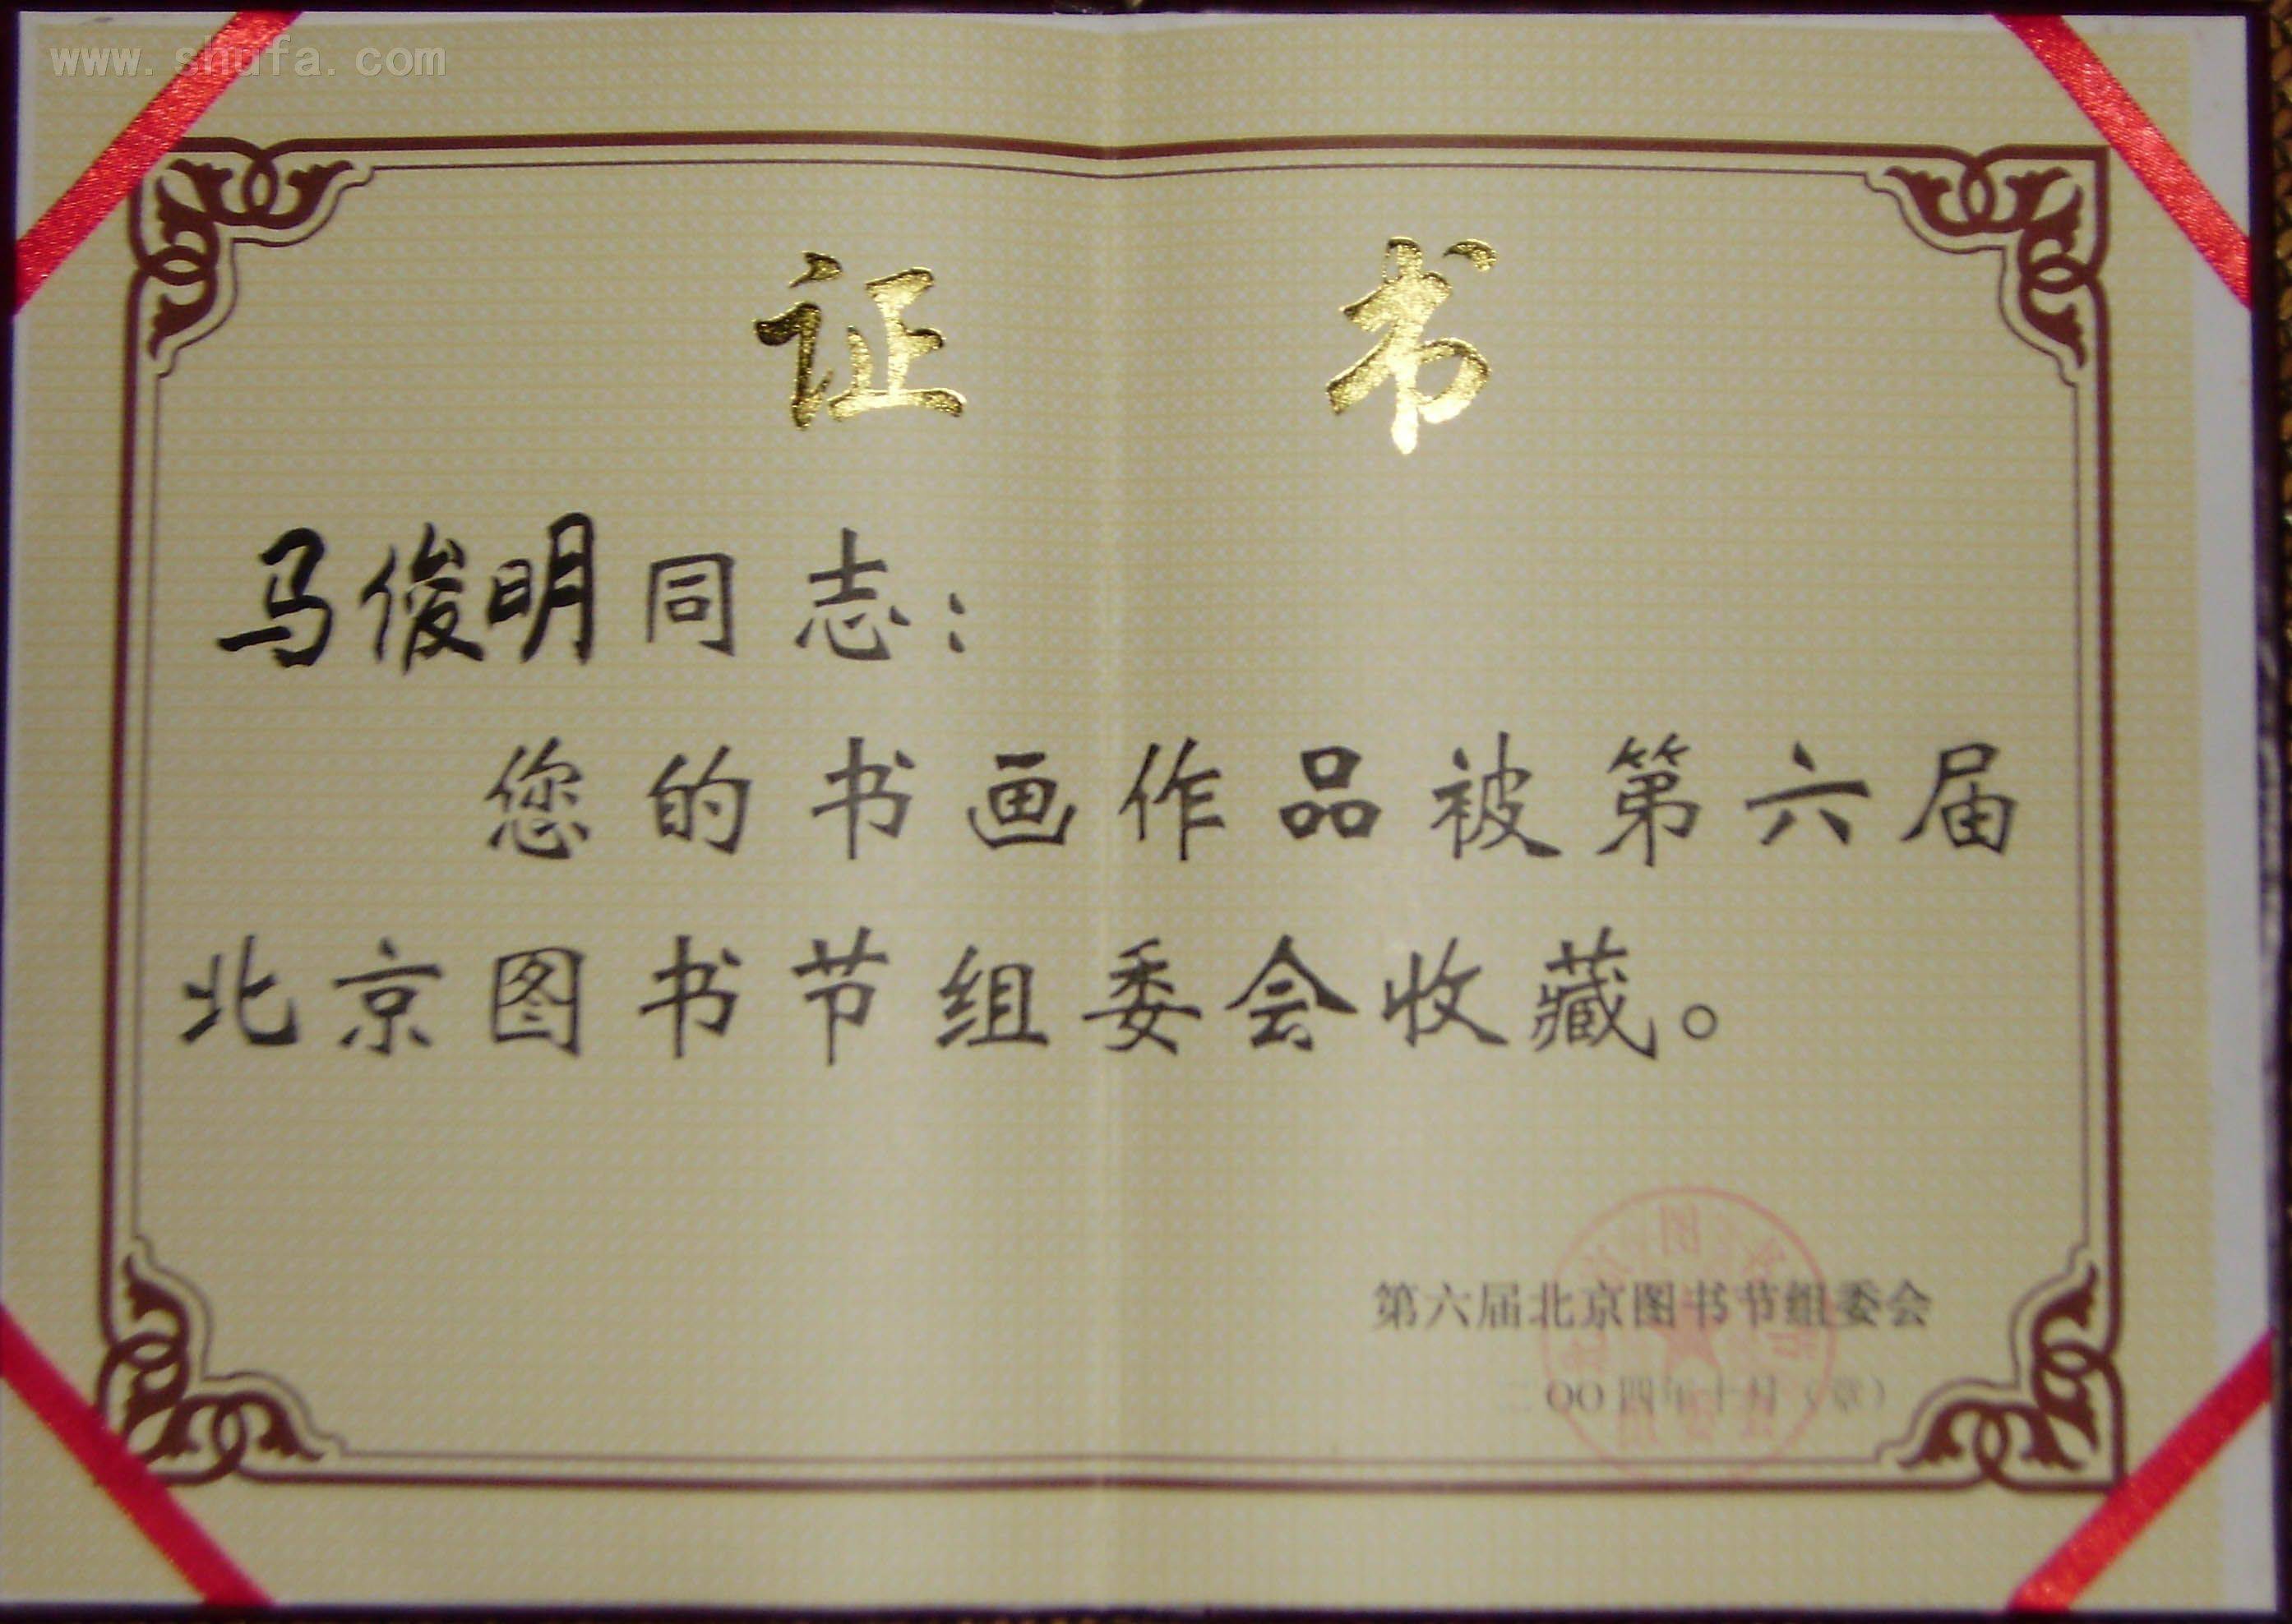 www.shufa.com
证书
马俊明同志：
您的书画作品被第六届
北京图书节组委会收藏。
第六届北京图书节组委会
二〇〇四年十月（章）